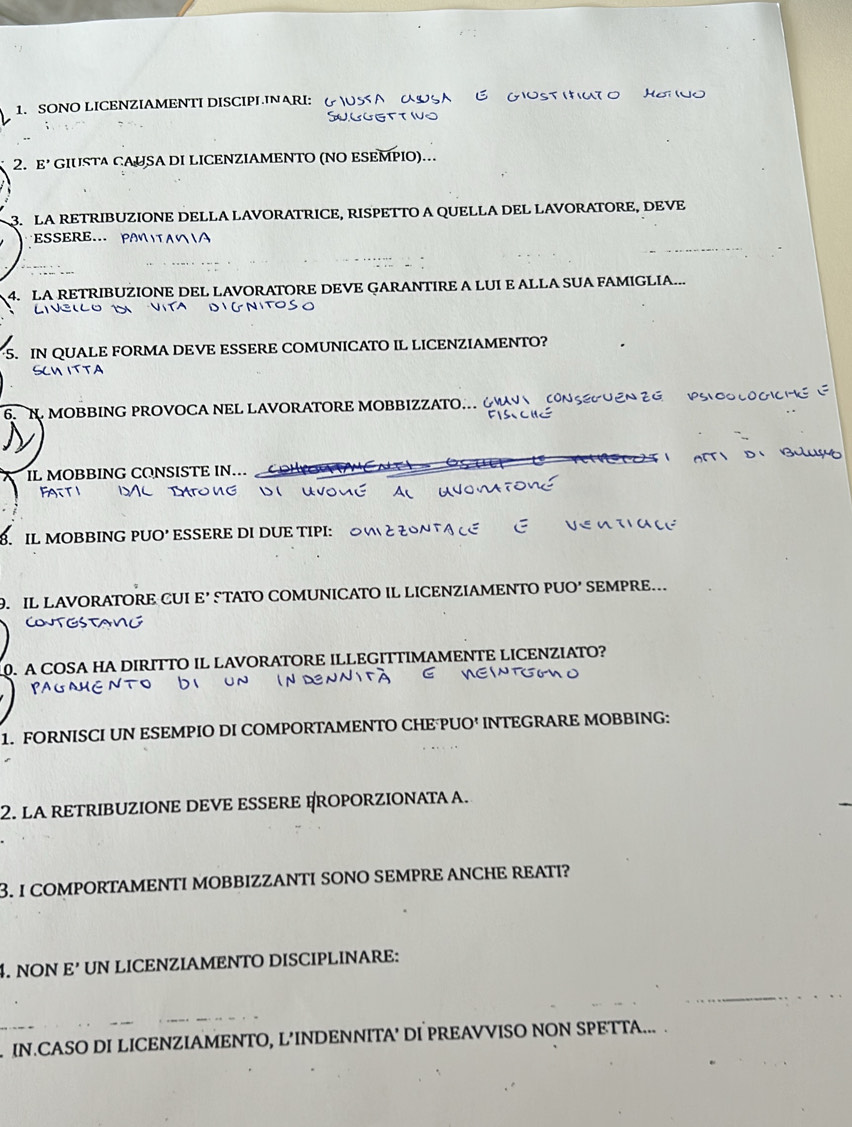 1. SONO LICENZIAMENTI DISCIPLINARI: GIUSTA CAUSA E GIUSTIFICATO MOTIVO
SUGGETTIVO
2. E' GIUSTA CAUSA DI LICENZIAMENTO (NO ESEMPIO)...
3. LA RETRIBUZIONE DELLA LAVORATRICE, RISPETTO A QUELLA DEL LAVORATORE, DEVE
ESSERE... PARITARIA
4. LA RETRIBUZIONE DEL LAVORATORE DEVE GARANTIRE A LUI E ALLA SUA FAMIGLIA...
LIVELLO DI VITA DIGNITOSO
5. IN QUALE FORMA DEVE ESSERE COMUNICATO IL LICENZIAMENTO?
SCRITTA
6. IL MOBBING PROVOCA NEL LAVORATORE MOBBIZZATO... GRAVI CONSEGUENZE PSICOLOGICHE E
FISICHE
IL MOBBING CONSISTE IN... ATTI DI BULLISMO
FATTI DAL DATORE DI LAVORE AL LAVORATORE
8. IL MOBBING PUO' ESSERE DI DUE TIPI: ORIZZONTALE E VERTICALE
9. IL LAVORATORE CUI E' STATO COMUNICATO IL LICENZIAMENTO PUO' SEMPRE...
CONTESTARE
10. A COSA HA DIRITTO IL LAVORATORE ILLEGITTIMAMENTE LICENZIATO?
PAGAMENTO DI UN INDENNITÀ E REINTEGRO
1. FORNISCI UN ESEMPIO DI COMPORTAMENTO CHE PUO' INTEGRARE MOBBING:
2. LA RETRIBUZIONE DEVE ESSERE PROPORZIONATA A.
3. I COMPORTAMENTI MOBBIZZANTI SONO SEMPRE ANCHE REATI?
4. NON E' UN LICENZIAMENTO DISCIPLINARE:
. IN CASO DI LICENZIAMENTO, L'INDENNITA' DI PREAVVISO NON SPETTA...